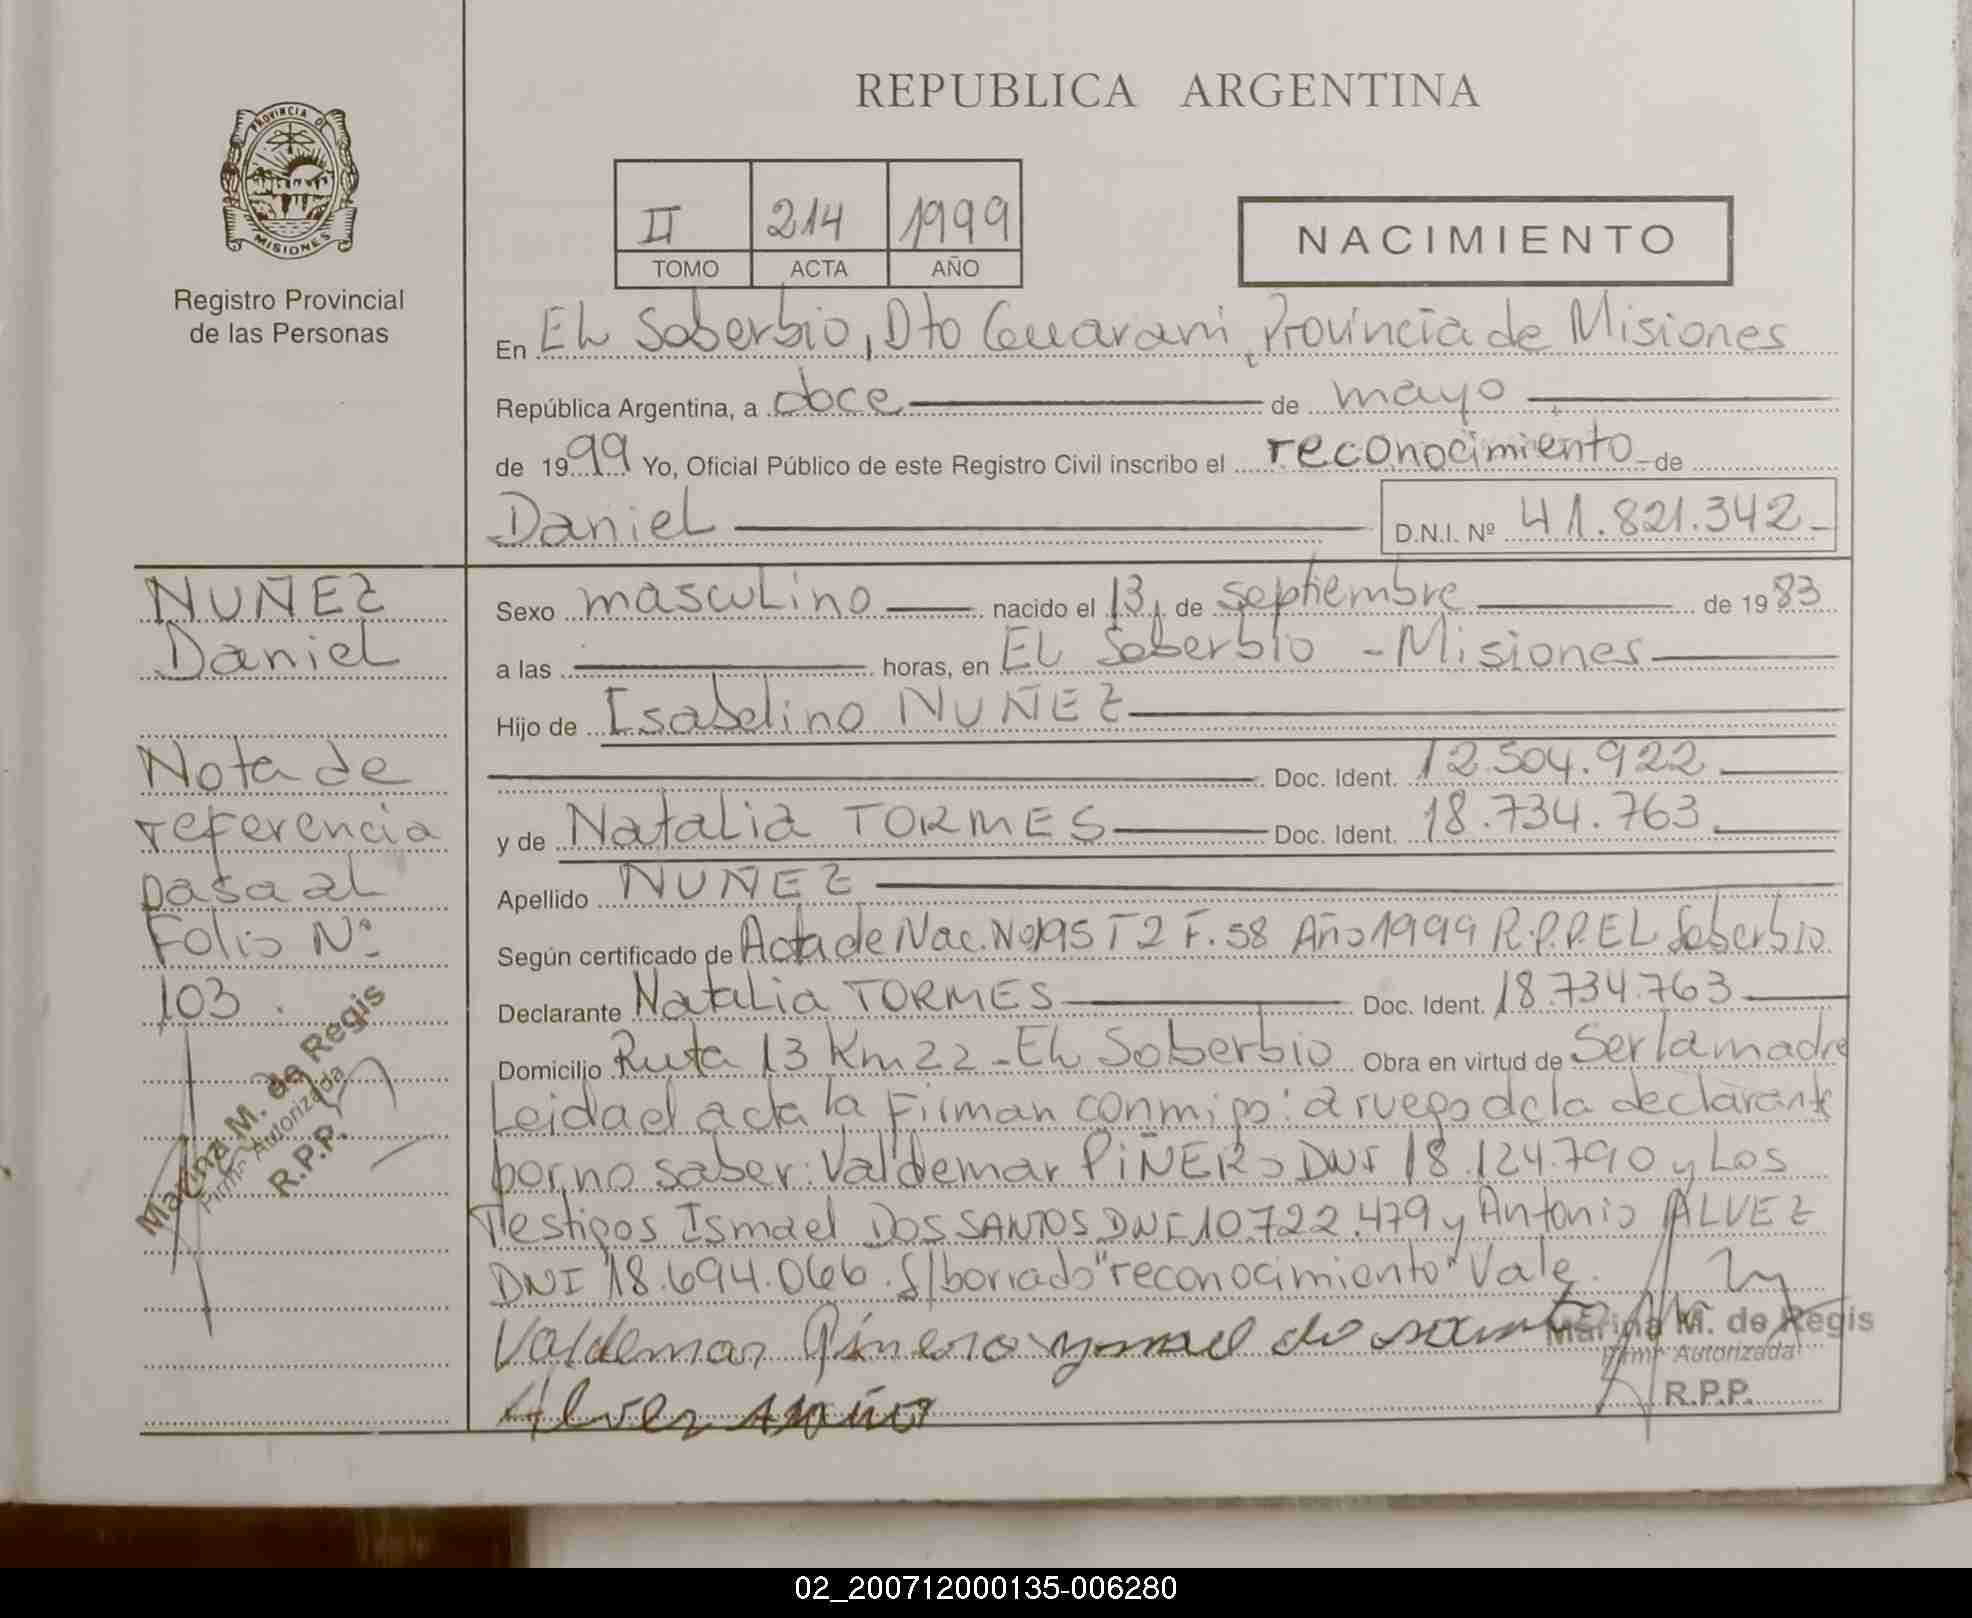 REPUBLICA ARGENTINA
PROVINCIA DE
MISIONES
Registro Provincial
de las Personas
II 214 1999
TOMO ACTA AÑO
NACIMIENTO
En EL Soberbio, Dto Guarani, Provincia de Misiones
República Argentina, a doce de mayo
de 1999 Yo, Oficial Público de este Registro Civil inscribo el reconocimiento de
Daniel D.N.I. Nº 41.821.342
NUÑEZ
Daniel
Nota de
referencia
pasa al
Folio Nº
103.
Marina M. de Regis
Firma Autorizada
R.P.P.
Sexo masculino nacido el 13 de septiembre de 1983
a las horas, en EL Soberbio - Misiones
Hijo de Isabelino NUÑEZ
Doc. Ident. 12.504.922
y de Natalia TORMES Doc. Ident. 18.734.763
Apellido NUÑEZ
Según certificado de Acta de Nac. Nº195 T2 F.58 Año 1999 R.P.P. EL Soberbio
Declarante Natalia TORMES Doc. Ident. 18.734.763
Domicilio Ruta 13 Km 22 - EL Soberbio Obra en virtud de Ser la madre
Leida el acta la Firman conmigo: a ruego de la declarante
por no saber: Valdemar PIÑERO DNI 18.124.790 y Los
Testigos Ismael DOS SANTOS DNI 10.722.479 y Antonio ALVEZ
DNI 18.694.066. S/borrado "reconocimiento" Vale.
Valdemar Piñero Ysmael do santo
Alves
Marina M. de Regis
Firma Autorizada
R.P.P.
02_200712000135-006280